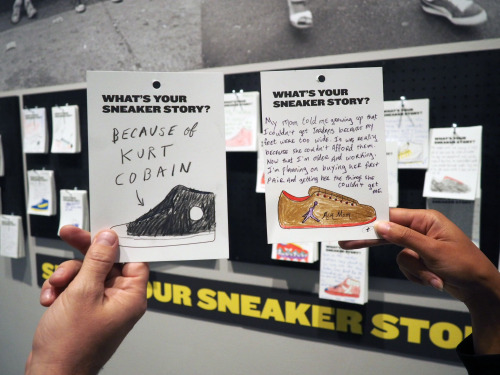 WHAT'S YOUR
SNEAKER STORY?
BECAUSE OF
KURT
COBAIN
WHAT'S YOUR
SNEAKER STORY?
My mom told me growing up that
I couldn't get Jordans because my
feet were too wide. It was really
because she couldn't afford them.
Now that I'm older and working,
I'm planning on buying her first
pair and getting her the things she
couldn't get
me.
Mom
OUR SNEAKER STO